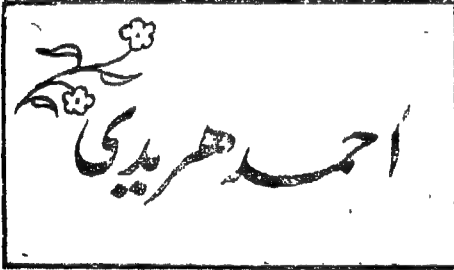 احمد هريدي